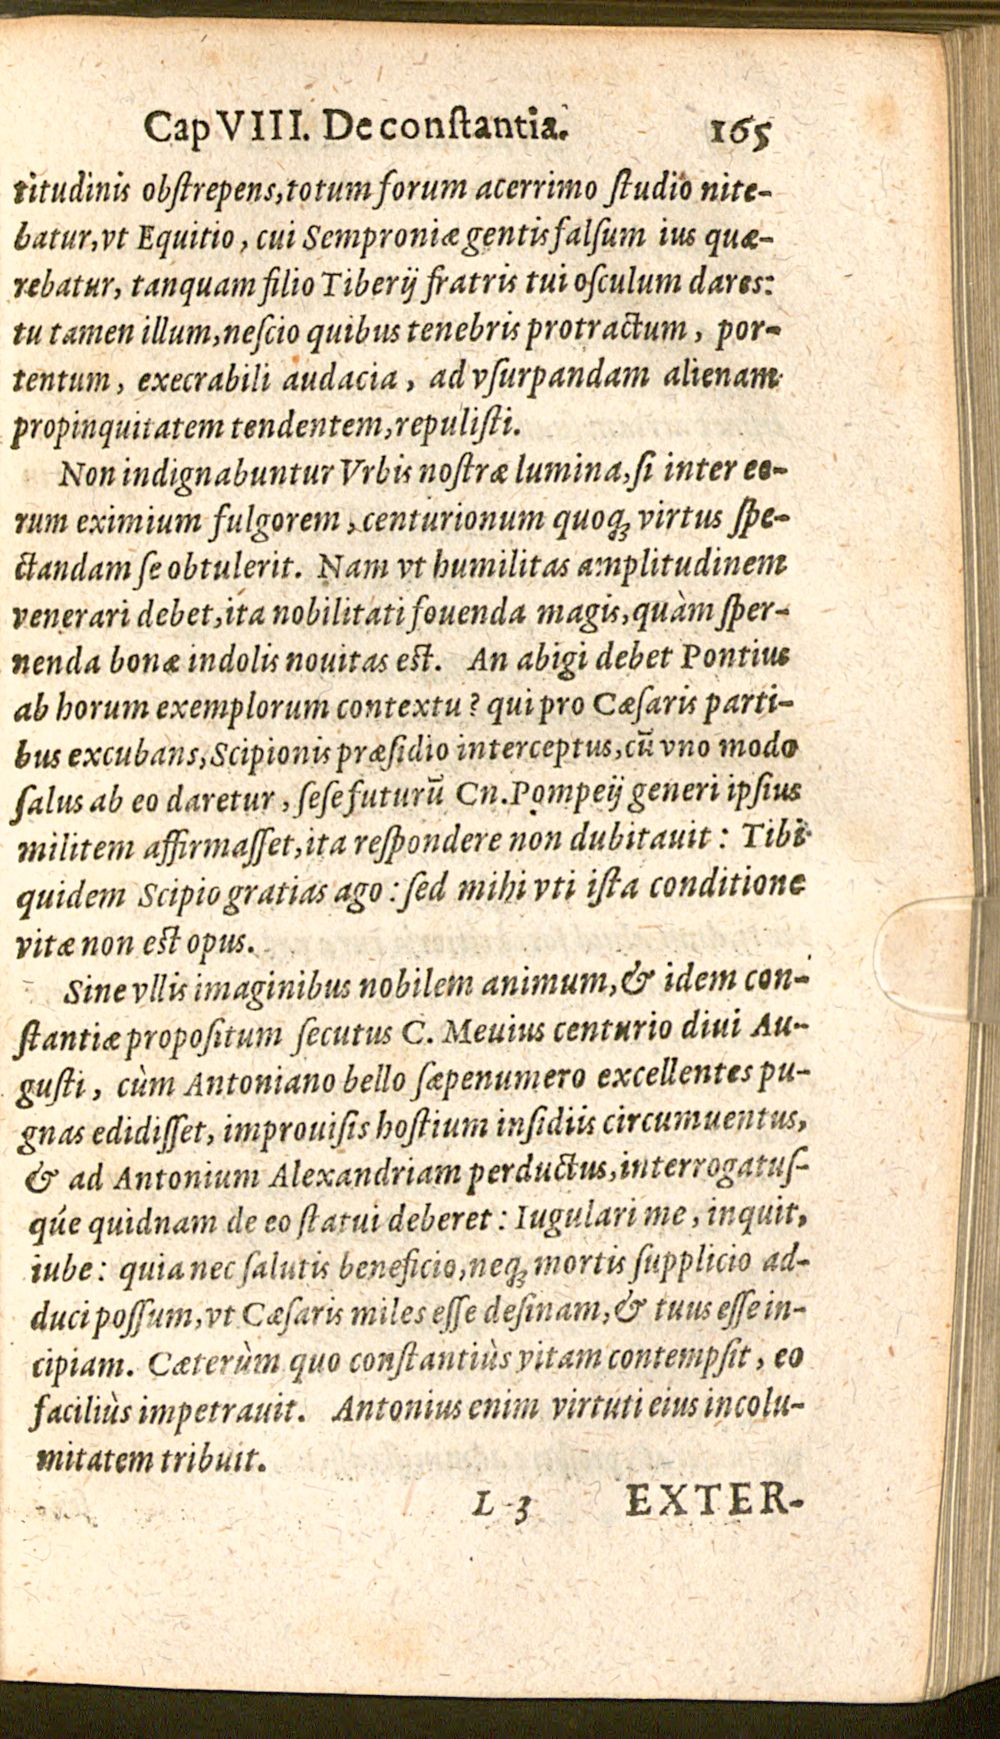 Cap VIII. De conſtantia. 165
titudinis obſtrepens, totum forum acerrimo ſtudio nite-
batur, vt Equitio, cui Semproniæ gentis falſum ius quæ-
rebatur, tanquam filio Tiberij fratris tui oſculum dares:
tu tamen illum, neſcio quibus tenebris protractum, por-
tentum, execrabili audacia, ad vſurpandam alienam
propinquitatem tendentem, repuliſti.
Non indignabuntur Vrbis noſtræ lumina, ſi inter eo-
rum eximium fulgorem, centurionum quoq; virtus ſpe-
ctandam ſe obtulerit. Nam vt humilitas amplitudinem
venerari debet, ita nobilitati fouenda magis, quàm ſper-
nenda bonæ indolis nouitas eſt. An abigi debet Pontius
ab horum exemplorum contextu? qui pro Cæſaris parti-
bus excubans, Scipionis præſidio interceptus, cū vno modo
ſalus ab eo daretur, ſeſe futurū Cn. Pompeij generi ipſius
militem affirmaſſet, ita reſpondere non dubitauit: Tibi
quidem Scipio gratias ago: ſed mihi vti iſta conditione
vitæ non eſt opus.
Sine vllis imaginibus nobilem animum, & idem con-
ſtantiæ propoſitum ſecutus C. Meuius centurio diui Au-
guſti, cùm Antoniano bello ſæpenumero excellentes pu-
gnas edidiſſet, improuiſis hoſtium inſidiis circumuentus,
& ad Antonium Alexandriam perductus, interrogatuſ-
qúe quidnam de eo ſtatui deberet: Iugulari me, inquit,
iube: quia nec ſalutis beneficio, neq; mortis ſupplicio ad-
duci poſſum, vt Cæſaris miles eſſe deſinam, & tuus eſſe in-
cipiam. Cæterùm quo conſtantiùs vitam contempſit, eo
faciliùs impetrauit. Antonius enim virtuti eius incolu-
mitatem tribuit.
L 3 EXTER-